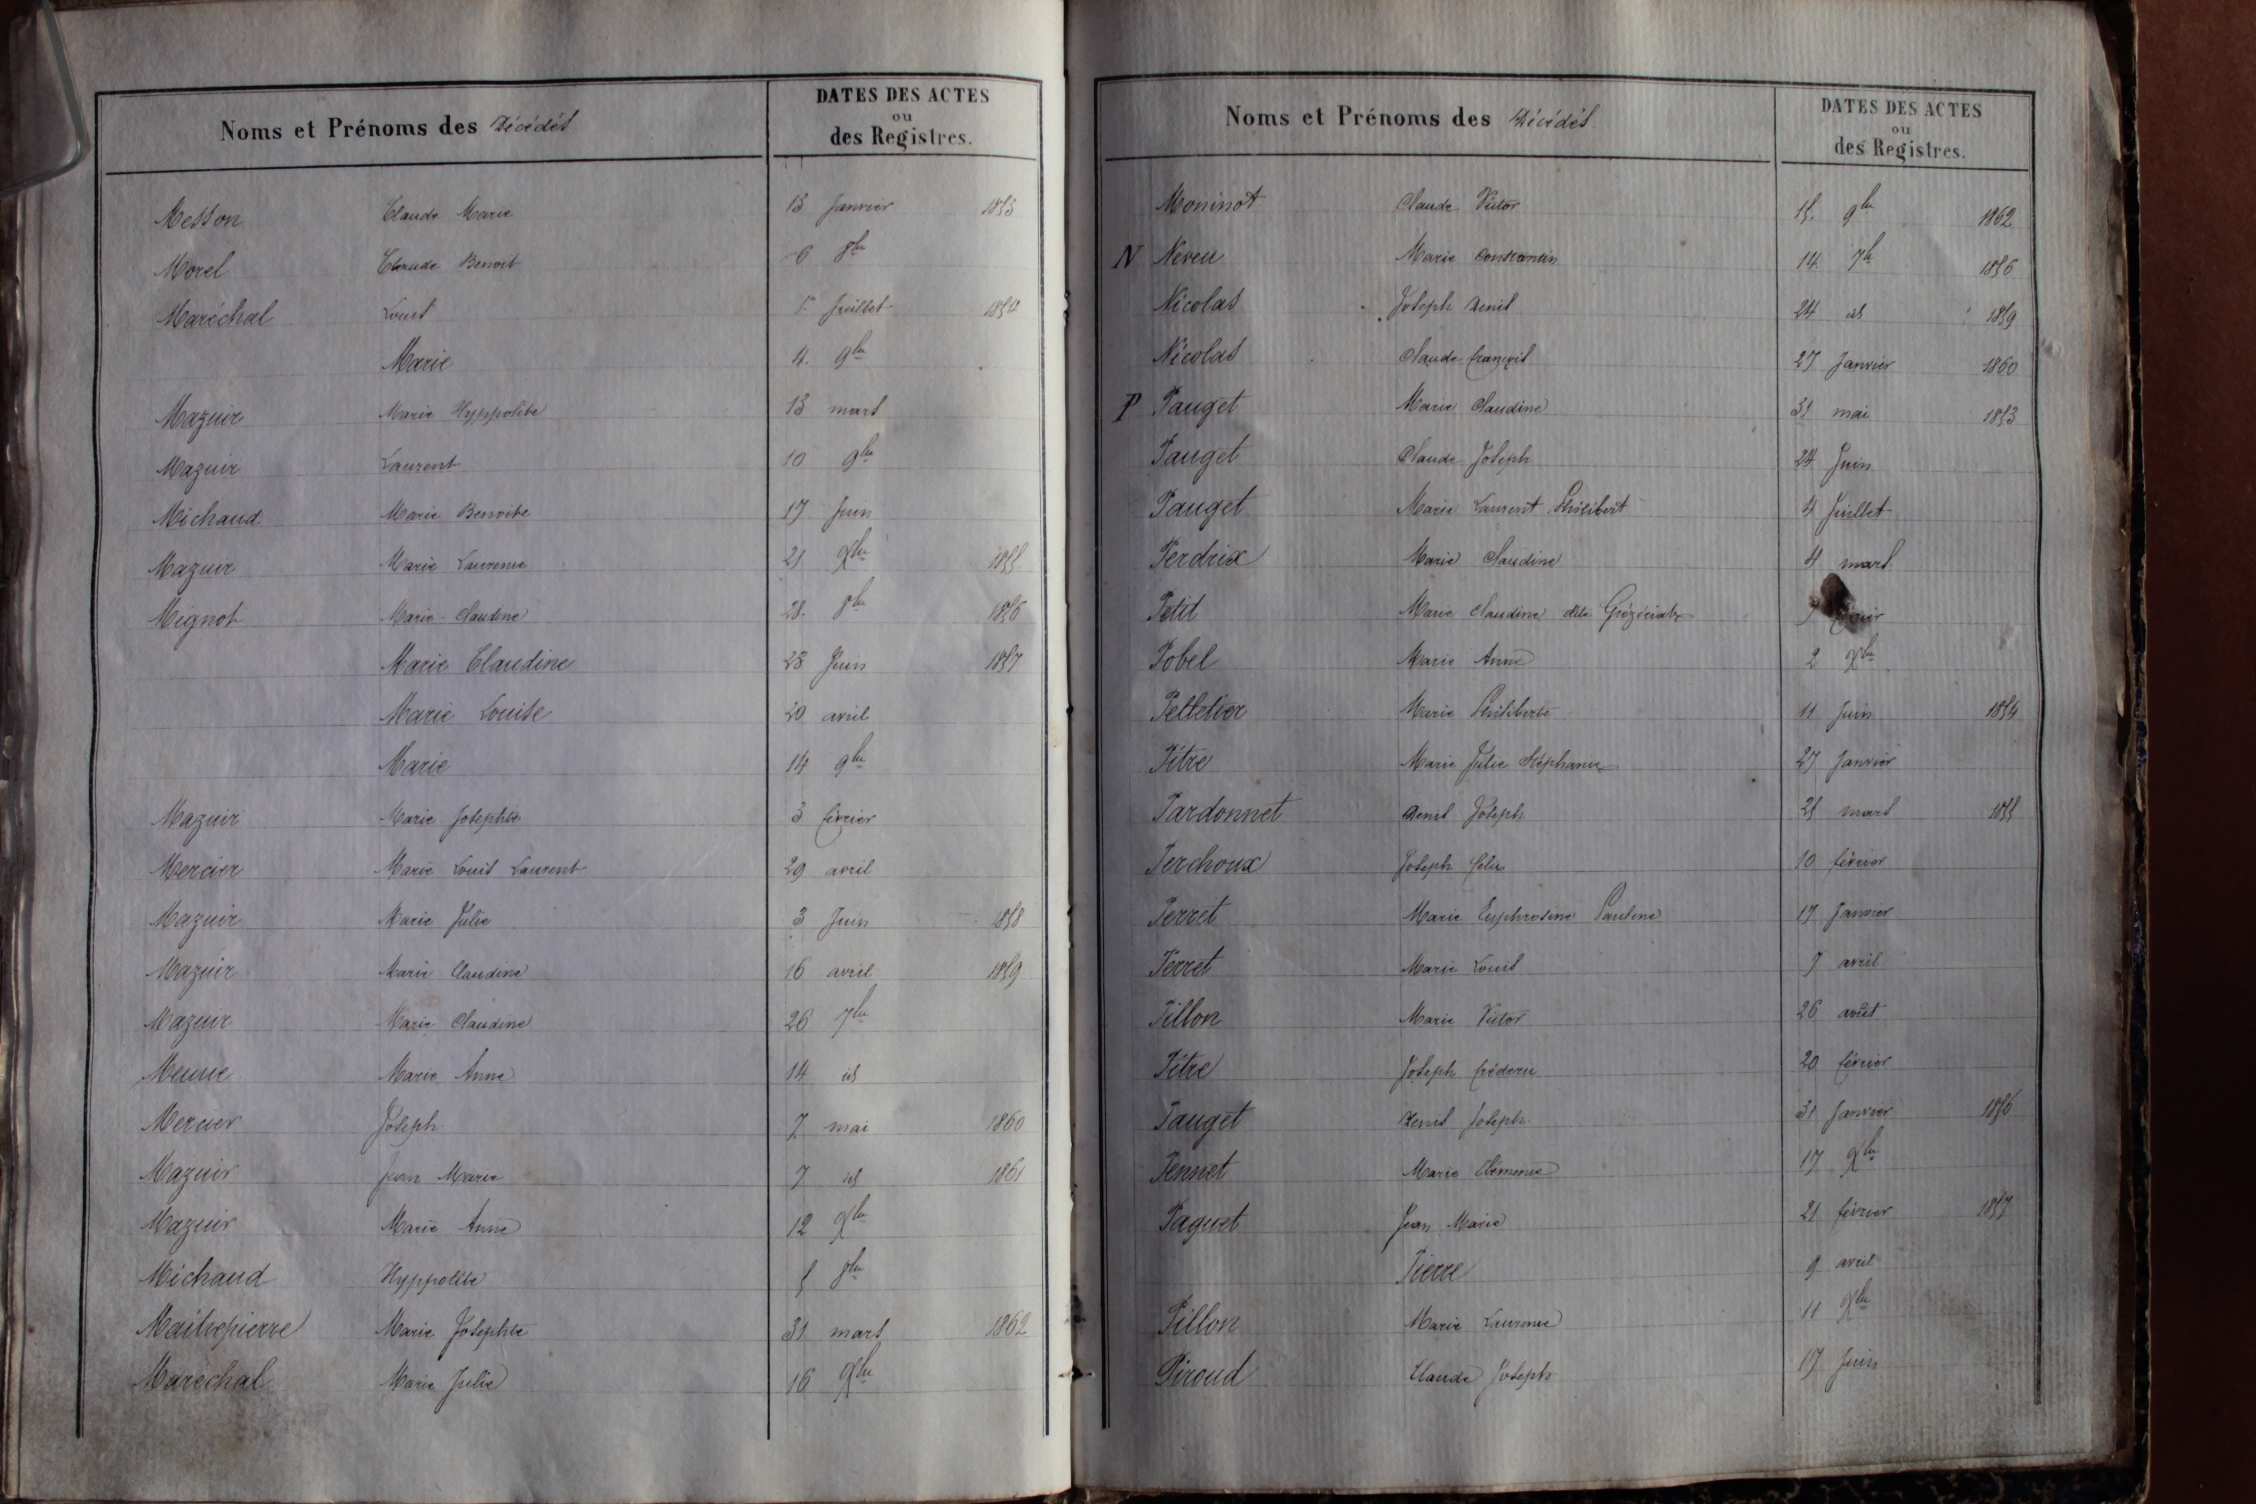 Noms et Prénoms des Décédés DATES DES ACTES
ou
des Registres.
Messon Claude Marie 13 Janvier 1853
Morel Claude Benoit 6 8bre
Maréchal Louis 1er Juillet 1854
Marie 4. 9bre
Mazuir Marie Hyppolite 13 mars
Mazuir Laurent 10 9bre
Michaud Marie Benoite 17 Juin
Mazuir Marie Laurence 21 Xbre 1855
Mignot Marie-Claudine 28. 8bre 1856
Marie Claudine 23 Juin 1857
Marie Louise 20 avril
Marie 14 9bre
Mazuir Marie Josephte 3 février
Mercier Marie Louis Laurent 29 avril
Mazuir Marie Julie 3 Juin 1858
Mazuir Marie Claudine 16 avril 1859
Mazuir Marie Claudine 26 7bre
Marie Anne 14 id
Mercier Joseph 7 mai 1860
Mazuir Jean Marie 7 id 1861
Mazuir Marie Anne 12 Xbre
Michaud Hyppolite 5 8bre
Maitrepierre Marie Josephte 31 mars 1862
Maréchal Marie Julie 16 Xbre
Noms et Prénoms des Décédés DATES DES ACTES
ou
des Registres.
Moninot Claude Victor 15. 9bre 1862
N Neveu Marie Constantin 14 7bre 1856
Nicolas Joseph Denis 24 id 1859
Nicolas Claude françois 27 Janvier 1860
P Pauget Marie Claudine 31 mai 1853
Pauget Claude Joseph 24 Juin
Pauget Marie Laurent Philibert 4 Juillet
Perdrix Marie Claudine 4 mars
Petit Marie Claudine dite février
Pobel Marie Anne 2 Xbre
Pelletier Marie Philiberte 11 Juin 1854
Pitre Marie Julie Stéphanie 27 Janvier
Pardonnet Denis Joseph 25 mars 1855
Perchoux Joseph félix 10 février
Perret Marie Euphrosine Pauline 17 Janvier
Perret Marie Louis 7 avril
Pillon Marie Victor 26 août
Pitre Joseph fréderic 20 février
Pauget Denis Joseph 31 Janvier 1856
Pennet Marie Clémence 17 Xbre
Paguet Jean Marie 21 février 1857
Pierre 9 avril
Pillon Marie Laurence 11 Xbre
Piroud Claude Joseph 17 Juin